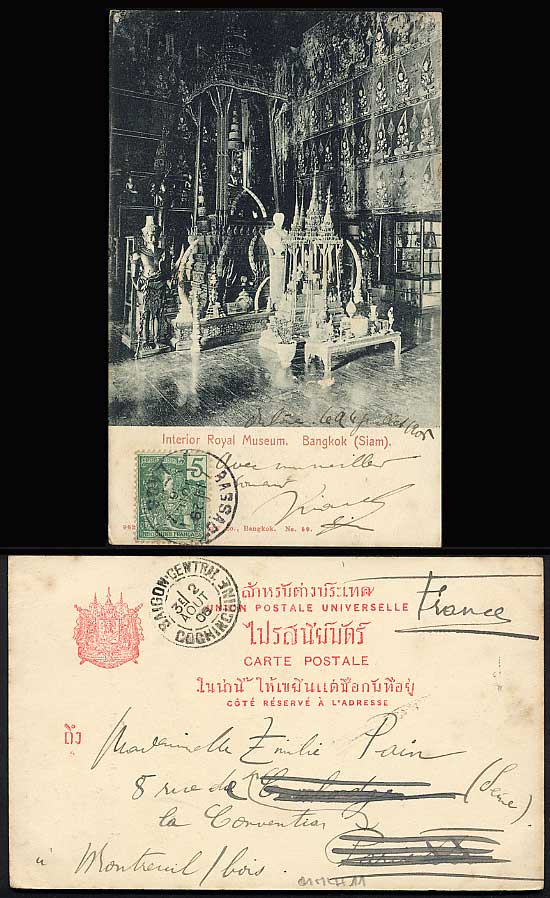 Interior Royal Museum. Bangkok (Siam).
5
Avec meilleur
o., Bangkok. No. 59.
SAIGON-CENTRAL
2
AOUT
COCHINCHINE
สำหรับต่างประเทศ
UNION POSTALE UNIVERSELLE
France
ไปรสนียบัตร์
CARTE POSTALE
ในน่านี้ ให้เขียนแต่ชื่อกับที่อยู่
CÔTÉ RÉSERVÉ À L'ADRESSE
ถึง
Mademoiselle Emilie Pain
8 rue de (Seine)
la Convention
à Montreuil / bois.